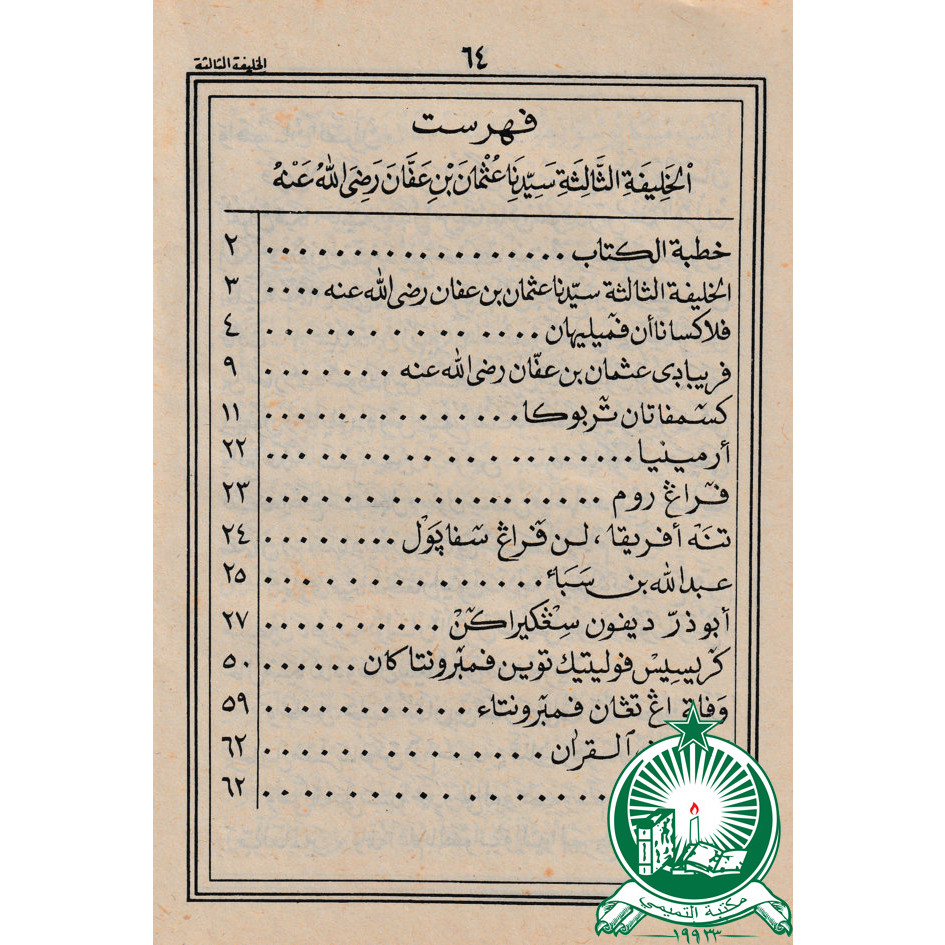 ٦٤
الخليفة الثالثة
فهرست
اَلْخَلِيفَةِ الثَّالِثَةِ سَيِّدِنَا عُثْمَانَ بْنِ عَفَّانَ رَضِىَ اللهُ عَنْهُ
خطبة الكتاب .................. ٢
الخليفة الثالثة سيّدنا عثمان بن عفان رضى الله عنه .... ٣
فلاكساناأن فمٓيليهان ............. ٤
فريبادى عثمان بن عفّان رضى الله عنه ....... ٩
كسمٓفاتان تٓربوكا .............. ١١
أرمينيا .................. ٢٢
فٓراڠ روم ................. ٢٣
تنه أفريقا، لن فٓراڠ سٓفاپَوْل ........ ٢٤
عبدالله بن سَبَاء .............. ٢٥
أبوذرّ ديفون سيڠكيراكٓنْ .......... ٢٧
كرٓيسِيسْ فوليتيك توين فمبٓرونتاكان ...... ٥٠
وَفاة اڠ تڠان فمبٓرونتاء ........... ٥٩
القرأن .............. ٦٢
................. ٦٢
مكتبة التميمي
١٩٩٣٣